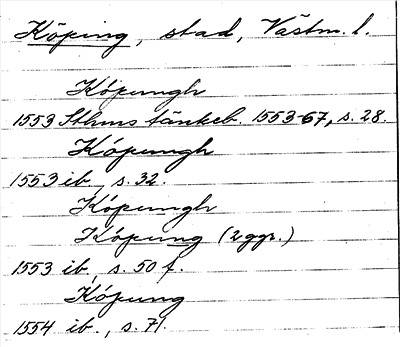 Köping, stad, Västm. l.
Köpungh
1553 Sthms tänkeb. 1553-67, s. 28.
Köpungh
1553 ib., s. 32.
Köpungh
Köpung (2 ggr.)
1553 ib., s. 50 f.
Köpung
1554 ib., s. 71.